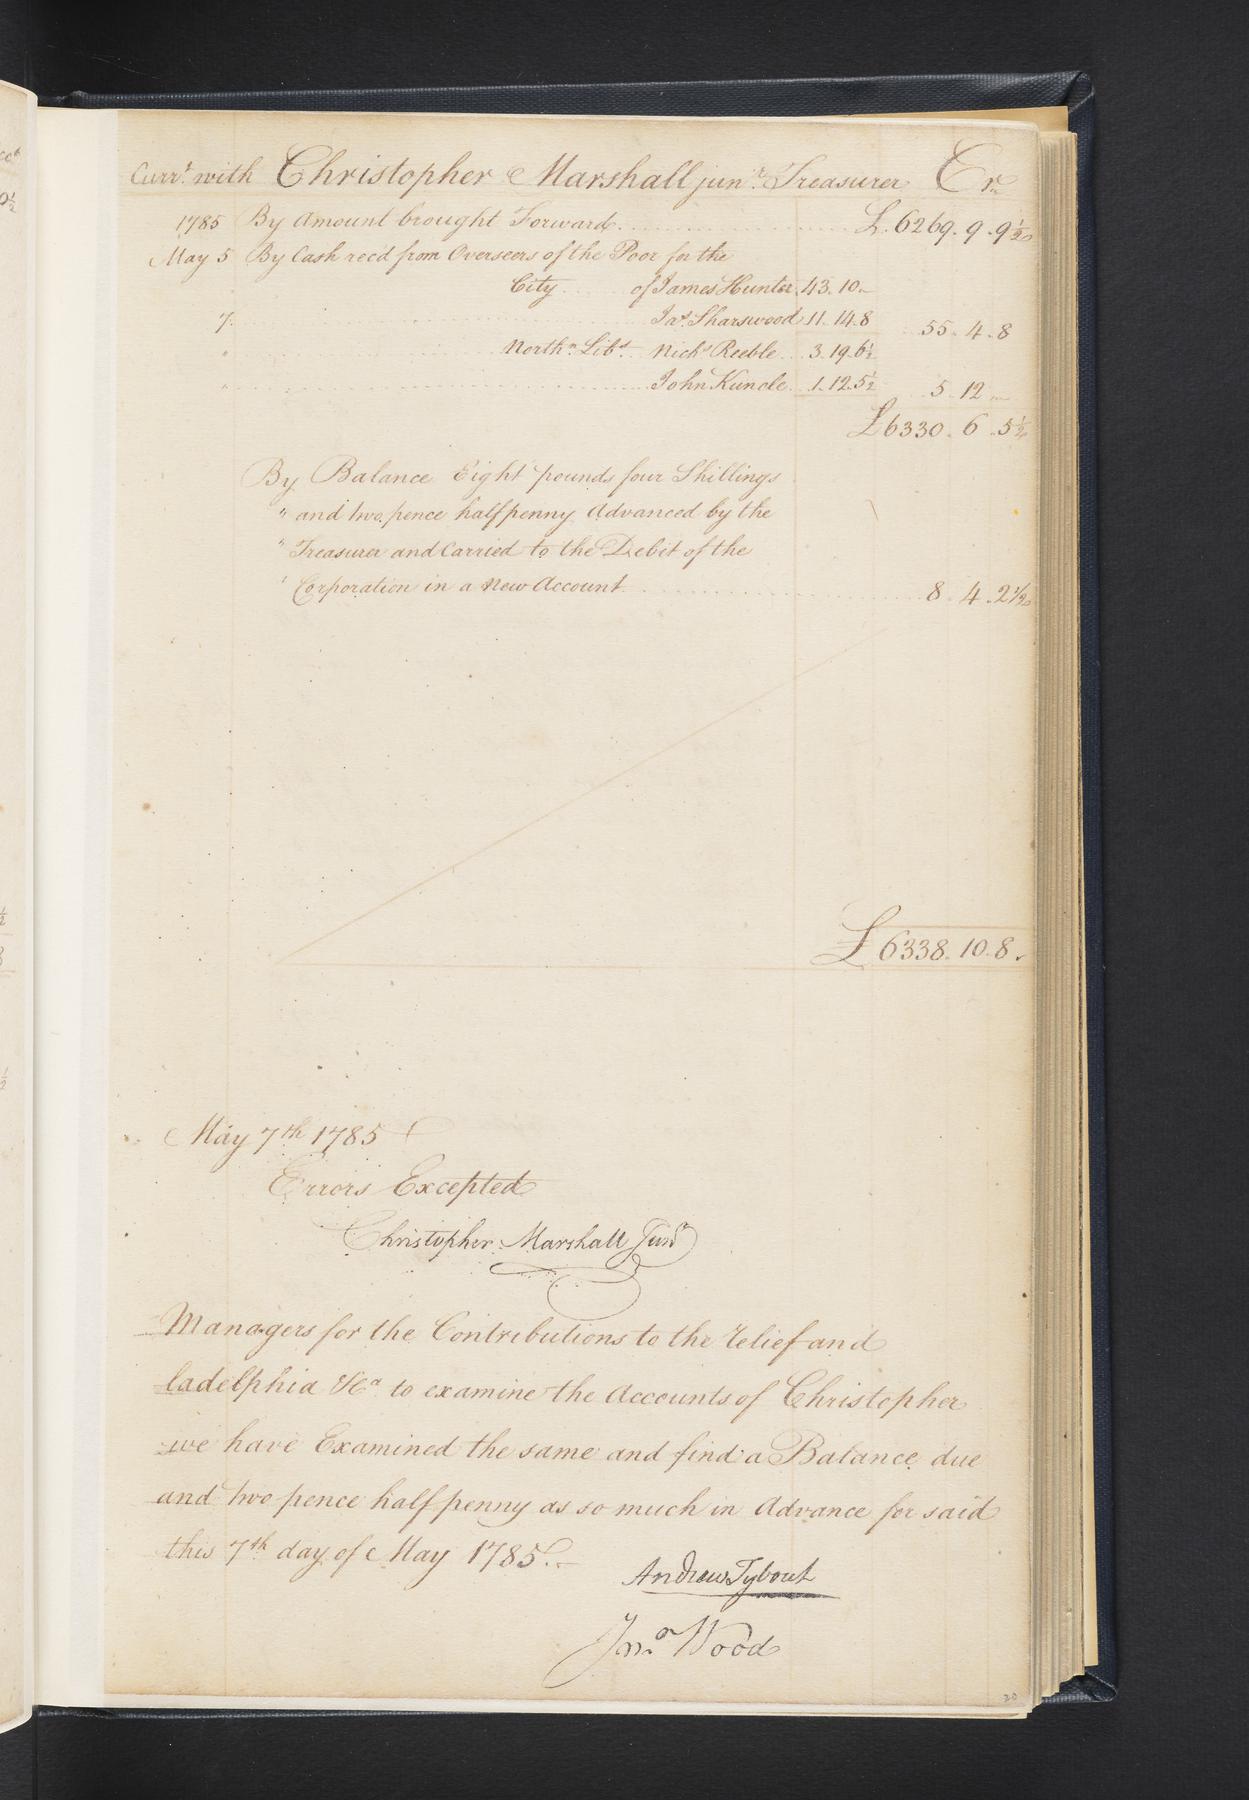 Curr.t with Christopher Marshall jun.r Treasurer Cr.
1785 By Amount brought Forward £.6269.9.9½
May 5 By Cash rec'd from Overseers of the Poor for the
City of James Hunter 43.10.-
7. Jas. Sharswood 11.14.8 55.4.8
" North.n Lib.s Nich.s Reeble 3.19.6½
" John Kuncle 1.12.5½ 5.12
£6330.6.5½
By Balance Eight pounds four Shillings
" and two pence halfpenny Advanced by the
" Treasurer and Carried to the Debit of the
" Corporation in a New Account 8.4.2½
£6338.10.8.
May 7th 1785
Errors Excepted
Christopher Marshall Junr
Managers for the Contributions to the relief and
ladelphia &Ca. to examine the Accounts of Christopher
we have Examined the same and find a Balance due
and two pence halfpenny as so much in Advance for said
this 7th day of May 1785.
Andrew Tybout
Jno. Wood
20